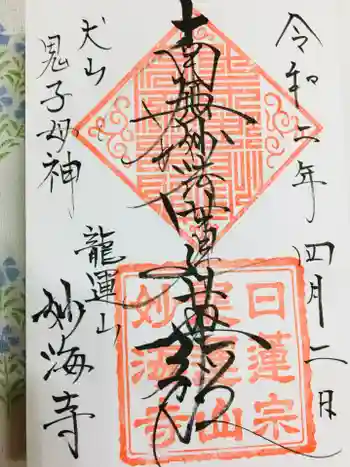 令和二年 四月二日
南無妙法蓮華経
犬山
鬼子母神
龍運山
妙海寺
日蓮宗
龍運山
妙海寺